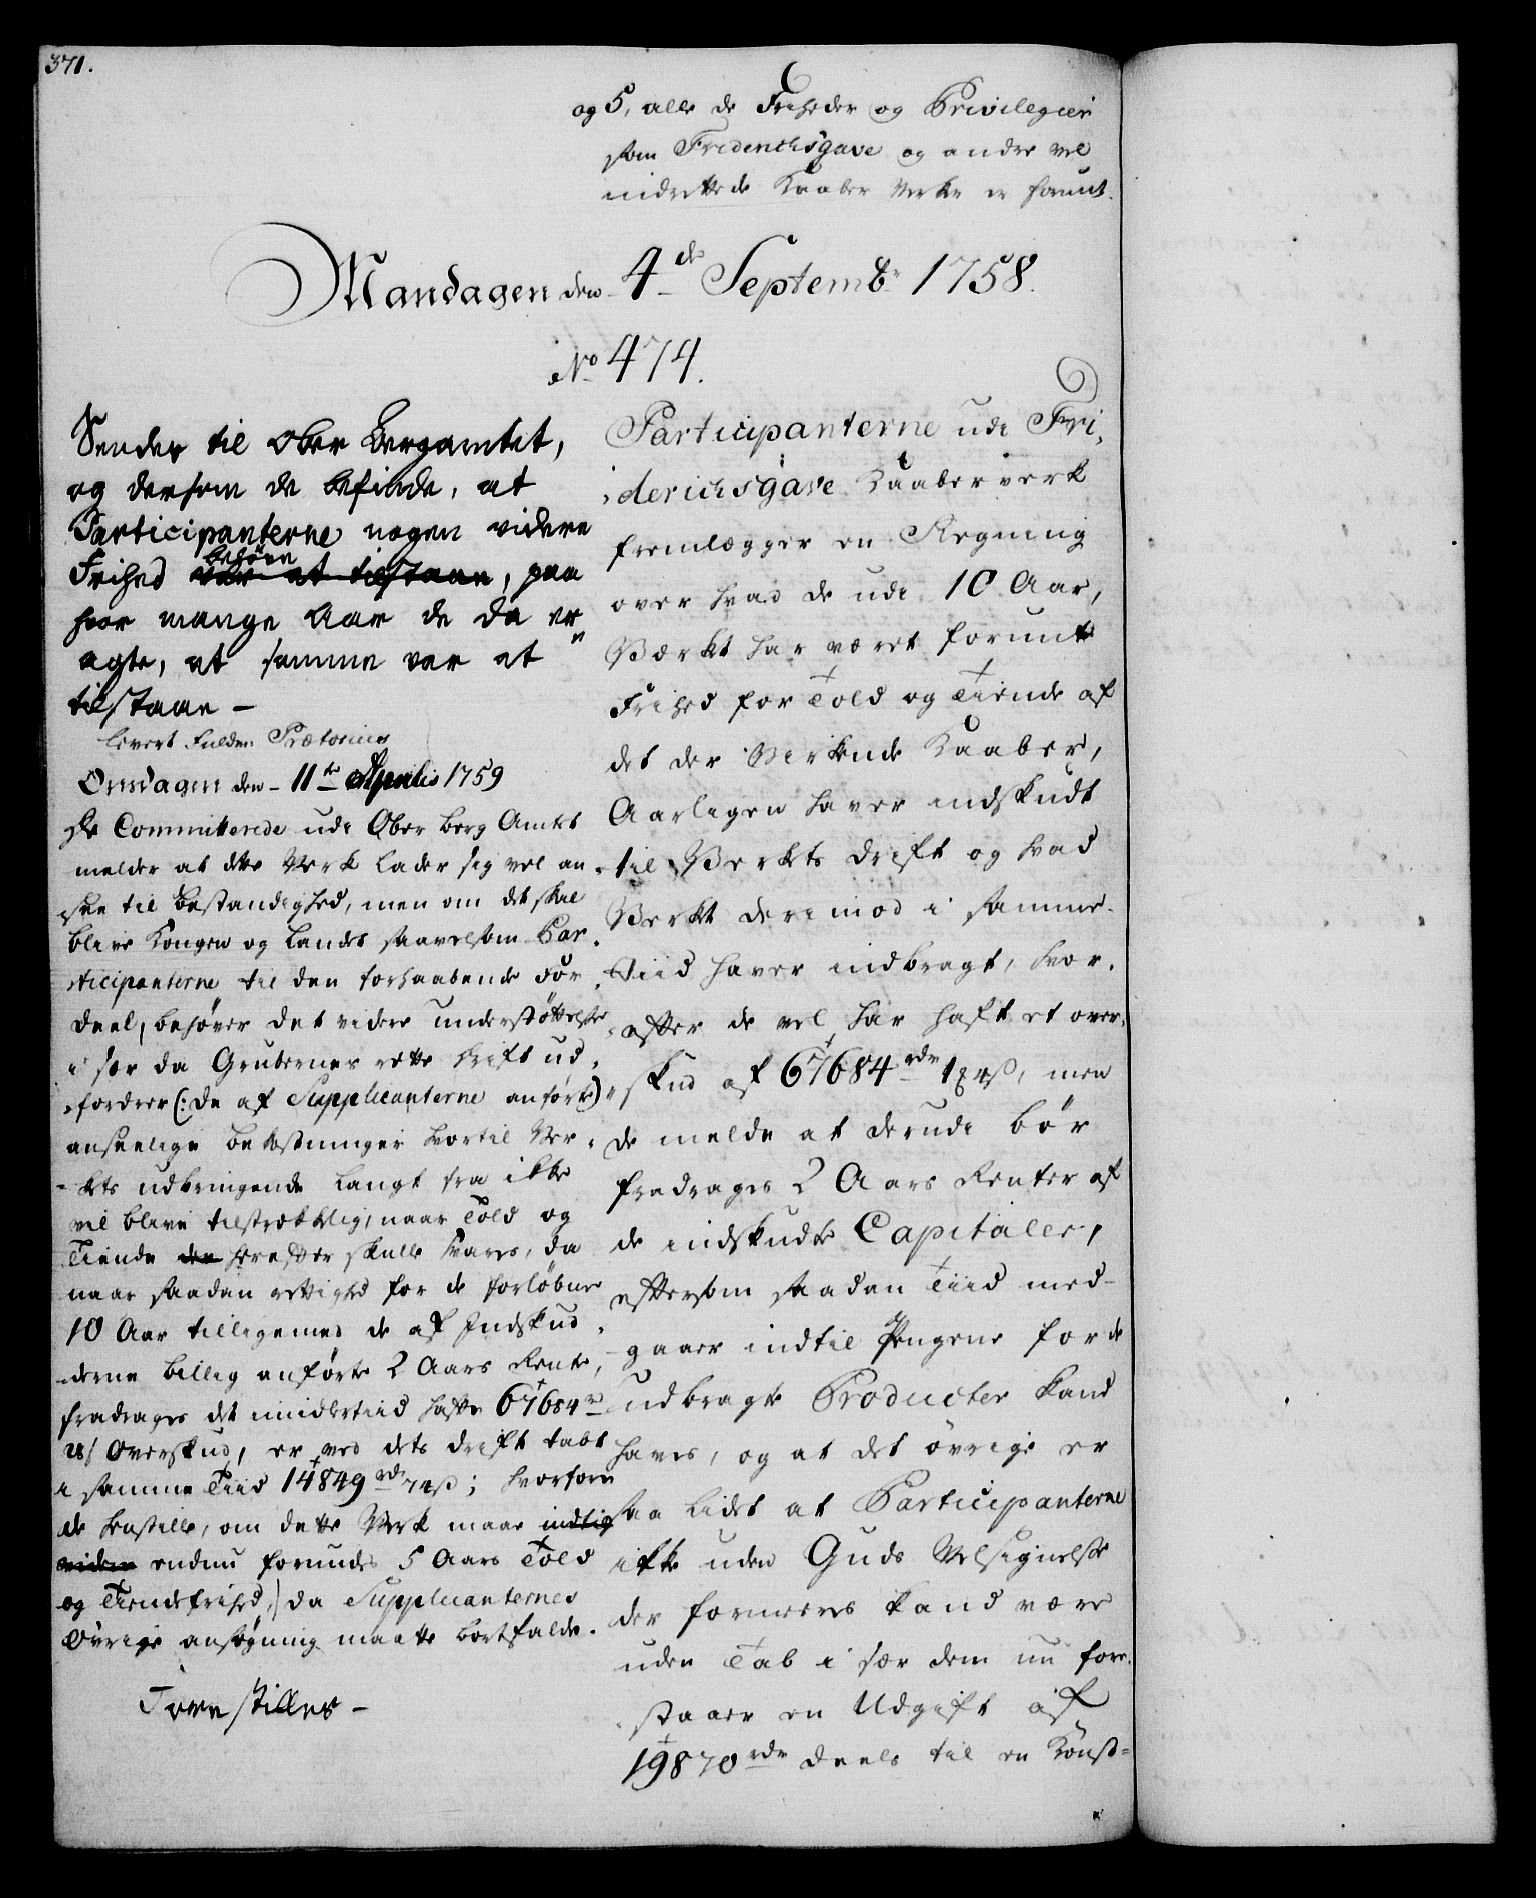 371.
og 5, alle de Friheder og Privilegier
som Friderichsgave og andre vel
indrettede Kaaber Verker er forunt.
Mandagen den 4de Septembr 1758.
No 474.
Sendes til Ober Bergamtet,
og dersom de befinde, at
Participanterne nogen videre
Frihed behøve var at tilstaae, paa
hvor mange Aar de da er
agte, at samme var at
tilstaae -
levert Fuldm: Prætorius
Onsdagen den 11te Aprilis 1759
De Committerede udi Ober Berg Amtet
melder at dette Verk lader sig vel an
see til Bestandighed, men om det skal
blive Kongen og Landet saavelsom Par
ticipanterne til den forhaabende For
deel, behøver det videre understøttelse
i sær da Grubernes rette Drift ud
fordrer (: de af Supplicanterne anførte)
anseelige bekostninger hvortil Ver
kets udbringende langt fra ikke
vil blive tilstrækkelig, naar Told og
Tiende den herefter skulle svares, da
naar saadan rettighed for de forløbne
10 Aar tilligemed de af Indskud
derne billig anførte 2 Aars Rente,
fradrages det imidlertiid hafte 67684 rd
Overskud, er ved dets drift tabt
i samme Tiid 14849 rd 74 ß; hvorfore
de henstille, om dette Verk maae indtil
viden endnu forundes 5 Aars Told
og Tiendefrihed, da Supplicanternes
øvrige ansøgning maatte bortfalde.
Forestilles -
Participanterne udi Fri,
derichsgave Kaaberverk
fremlægger en Regning
over hvad de udi 10 Aar,
Værket har været forunt
Frihed for Told og Tiende af
det der Virkende Kaaber,
Aarligen haver indskudt
til Verkets Drift og hvad
Verket derimod i samme
Tiid haver indbragt, hvor
efter de vel har haft et over
skud af 67684 rdr 1 ₰ 4 ß, men
de melde at derudi bør
fradrages 2 Aars Renter af
de indskudte Capitaler,
eftersom saadan Tiid med
gaaer indtil Pengene for de
udbragte Producter kand
haves, og at det øvrige er
saa lidet at Participanterne
ikke uden Guds Velsignelse
der fornemmes kand være
uden Tab i sær dem nu fore
staaer en Udgift af
19870 rdr deels til en Konst=